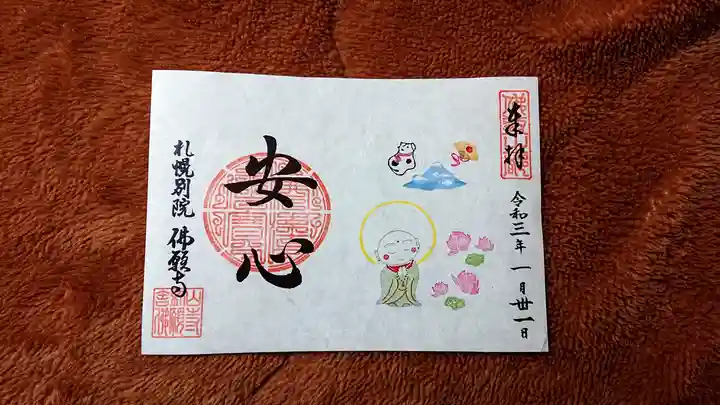 奉拝
令和三年 一月卅一日
安心
札幌別院 佛願寺